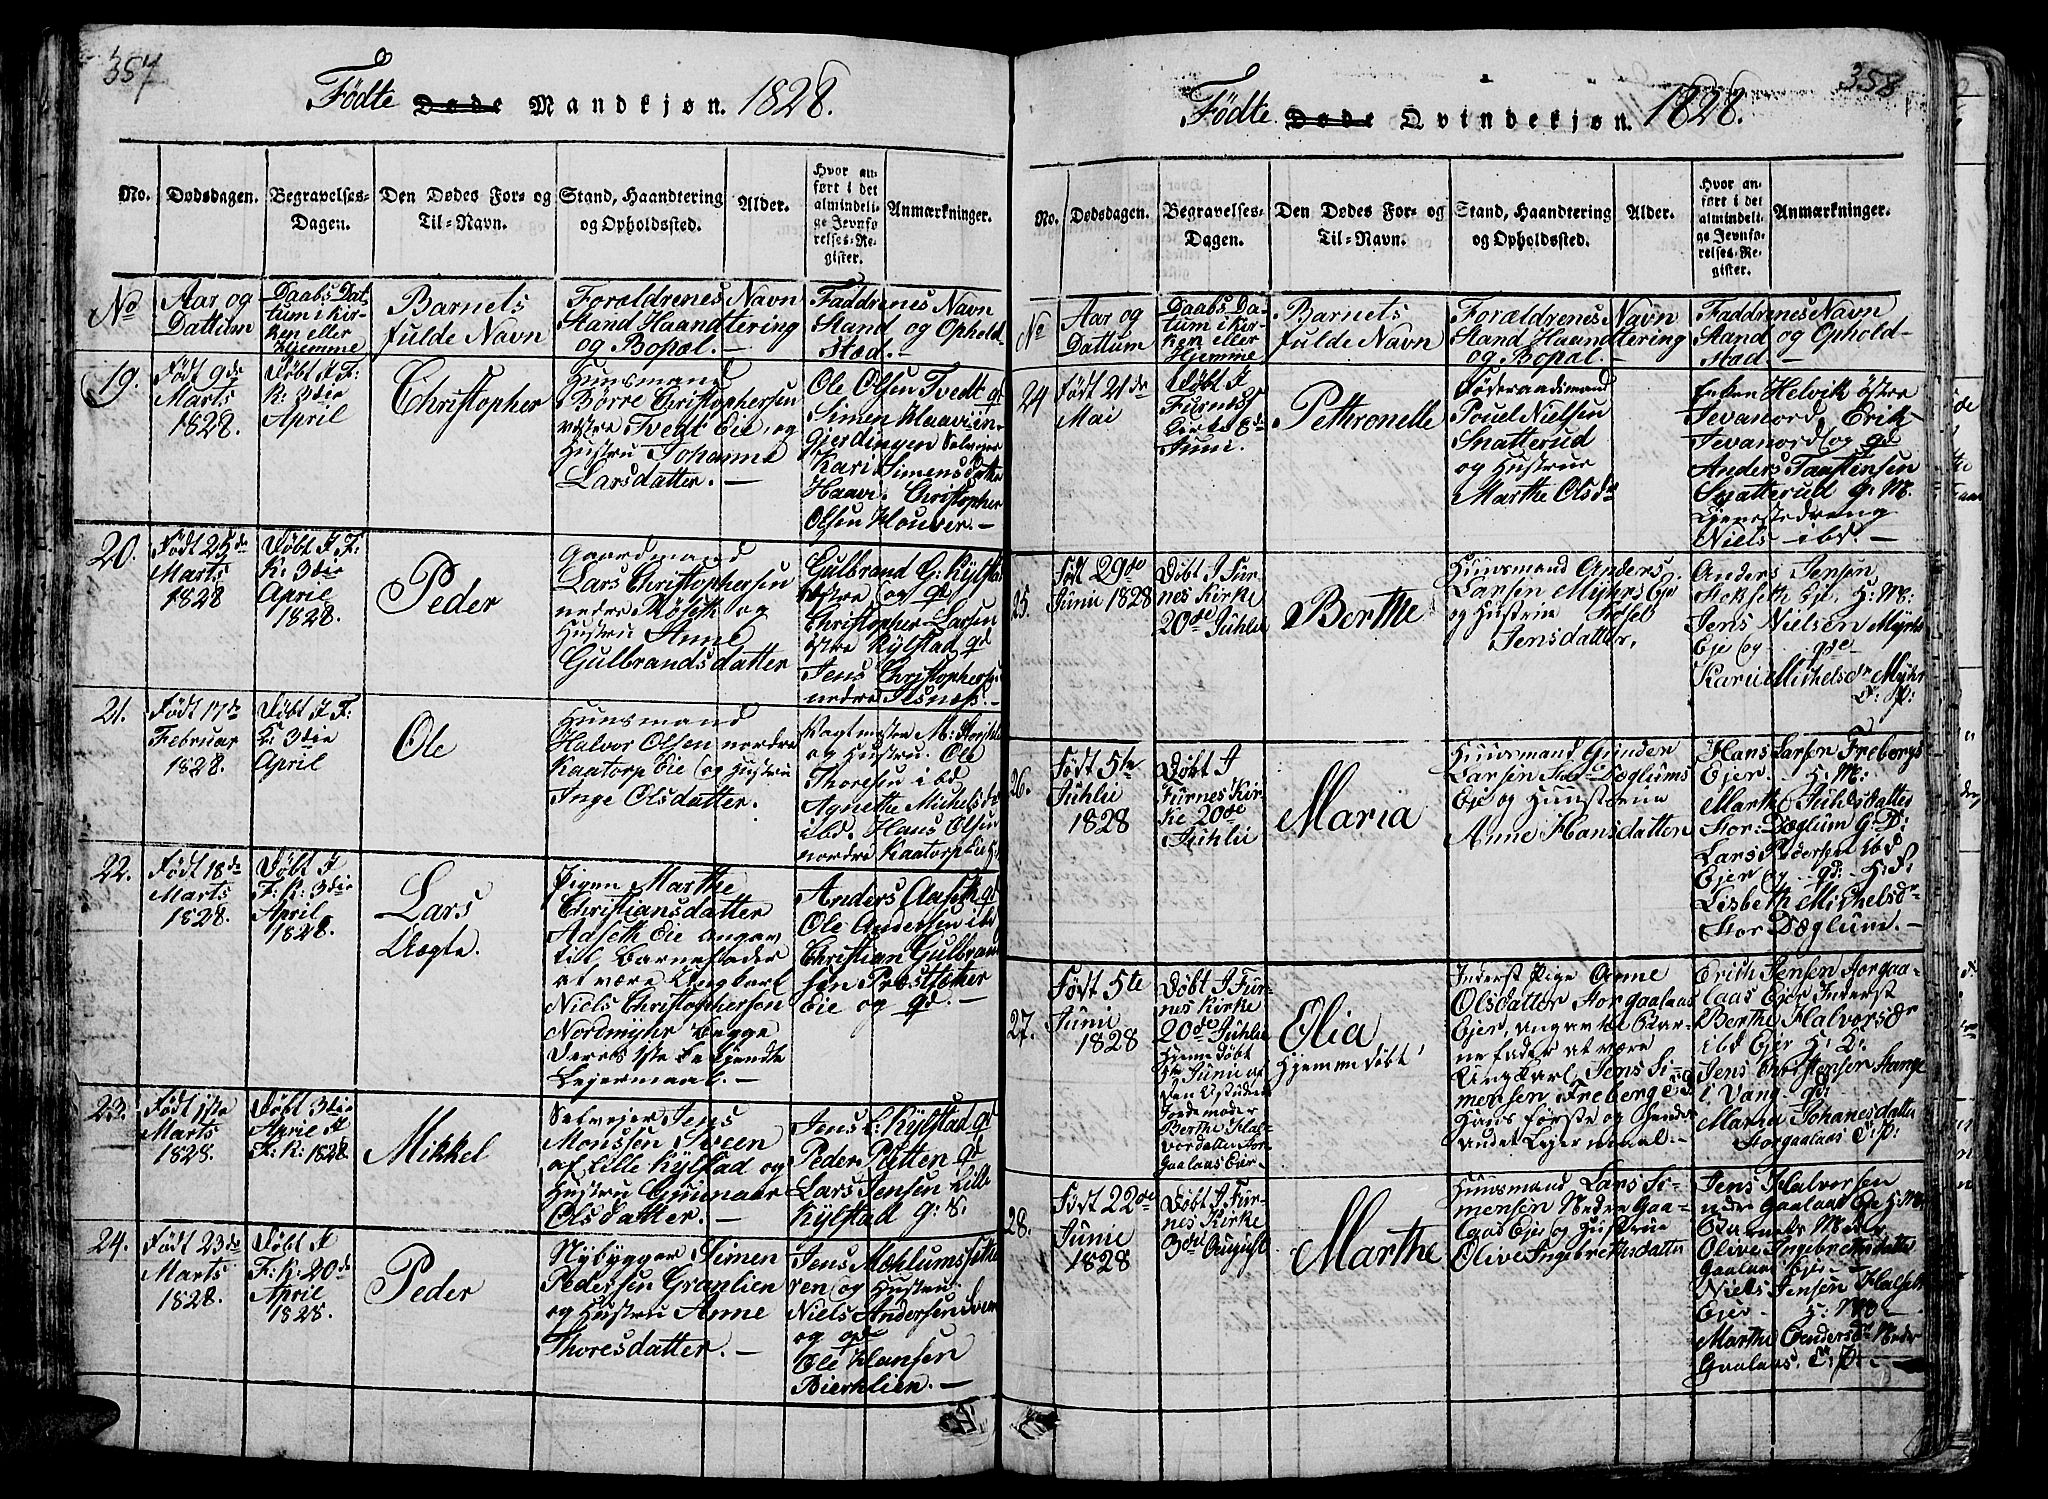 357
Fødte Døde Mandkjøn. 1828.
No.
Dødsdagen.
Begravelses-
Dagen.
Den Dødes For- og
Til-Navn.
Stand, Haandtering
og Opholdssted.
Alder.
Hvor an-
ført i det
almindeli-
ge Jevnfø-
relses-Re-
gister.
Anmærkninger.
No
Aar og
Dattum
Daabs Dat-
tum i Kir-
ken eller
Hjemme
Barnets
fulde Navn
Forældrenes Navn
Stand Haandtering
og Bopæl. —
Faddrenes Navn
Stand og Ophold
Stæd. —
19.
Født 9de
Marts
1828.
Døbt I F:
K: 3die
April
Christopher
Huusmand
Børre Christophersen
østre Tvedt Eie, og
Hustru Johanne
Larsdatter. —
Ole Olsen Tvedt gd
Simen Haavi in-
gjerdingen Selveier
Kari Simensdatter
Haavi. Christopher
Olsen
20.
Født 25de
Marts
1828
Døbt I F:
K: 3die
April
1828.
Peder
Gaardmand
Lars Christophersen
nedre Røseth og
Hustru Anne
Gulbrandsdatter
Gulbrand G: Kylstad
østre og gd
Christopher Larsen
østre Kylstad gd
Jens Christophersen
nedre Jesnæs. —
21.
Født 17de
Februar
1828.
Døbt I F:
K: 3die
April
Ole
Huusmand
Halvor Olsen nordre
Kaatorp Eie og Hustru
Inge Olsdatter.
og Hustru. Ole
Thoresen ibd
Agnethe Michelsdr
ibd. Hans Olsen
nordre Kaatorp Eie
22.
Født 18de
Marts
1828.
Døbt I
F: K: 3die
April
1828.
Lars
Uægte.
Pigen Marthe
Christiansdatter
Adseth Eie angav
til Barnefader
at være Ungkarl
Niels Christophersen
Nordmyhr begge
deres 1ste bekjendte
Leiermaal. —
Anders Aaseth gd
Ole Andersen ibd
Christian Gulbrand
sen Præstsæter
Eie og gd. —
23.
Født 1ste
Marts
1828.
Døbt 3die
April I
F: K: 1828
Mikkel
Selveier Jens
Monssen Sveen
af Lille Kylstad og
Hustru Gunnaar
Olsdatter. —
Jens L: Kylstad gd
Peder Pletten gd
Lars Jensen Lille
Kylstad g: S:
24.
Født 23de
Marts
1828.
Døbt I
F: K: 20de
April
1828.
Peder
Nybygger Simen
Pedersen Granlien
og Hustru Anne
Thoresdatter. —
Jens Mæhlumssæte
ren og Hustru
Niels Andersen Sveen
og gd
Ole Hansen
Bierklien. —
358
Fødte Døde Qvindekjøn. 1828.
No.
Dødsdagen.
Begravelses-
Dagen.
Den Dødes For- og
Til-Navn.
Stand, Haandtering
og Opholdssted.
Alder.
Hvor an-
ført i det
almindeli-
ge Jevnfø-
relses-Re-
gister.
Anmærkninger.
No
Aar og
Dattum
Daabs Da-
tum i Kir-
ken eller
Hjemme
Barnets
fulde Navn
Forældrenes Navn
Stand Haandtering
og Bopæl. —
Faddrenes Navn
Stand og Ophold-
stad. —
24
Født 21de
Mai
Døbt I
Furnes
Kirke 8de
Juni.
Pethronelle
Poul Nielsen
Snatterud
og Hustrue
Marthe Olsdr
Enken Helvik östre
Jevanord, Erik
Jevanord og gd
Anders Taastensen
Snatterud g: M.
Tjenestedreng
Niels ibd —
25.
Født 29de
Junii 1828
Døbt I Fur-
nes Kirke
20de Juhlii
Berthe
Huusmand Anders
Larsen Myhrs Eje
og Hustrue
Jensdatter,
Anders Jensen
Stokseth Eje, H: M:
Jens Nielsen Myhrs
Eje og gde
Karii Michelsdr Myhr
T: P:
26.
Født 5te
Juhlii
1828
Døbt I
Furnes Kir-
ke 20de
Juhlii
Maria
Huusmand Gunder
Larsen Stor Dæglums
Eje og Huustrue
Anne Hansdatter
Hans Larsen Frebergs
Ejer. H: M:
Marthe Juhlsdatter
Stor: Dæglum G: D:
Lars Pedersen ibd
Ejer og gd. H: F:
Lisbeth Michelsdr
Stor Dæglum. —
27.
Født 5te
Junii
1828
Døbt I Fur-
nes Kirke
20de Juhlii
Hjemedøbt
5te Junii af
den Ustuderte
Jordemoder
Berthe Hal-
vordatter Stor-
Gaalaas Eier
Olia
Hjemmedøbt
Inderst Pige Anne
Olsdatter Storgaalaas
Ejer, angav til Bar-
nefader at være
Ungkarl Jens Si-
mensen, Freberg Ejd
Hans første og hendes
andet Leiermaal. —
Erich Jensen Storgaa-
laas Ejer Inderst
Berthe Halvorsdr
ibd Ejer
Jens Christensen Stange
i Vang gd:
Maria Johanesdatter
Storgaalaas T: P:
28.
Født 22de
Junie
1828
Døbt I Fur-
nes Kirke
3die August
Marthe
Huusmand Lars Si-
mensen Nedre Gaa-
laas Eje og Hustrue
Olive Ingebrethsdatter
Jens Halvorsen
nedre Gaalaas Eje H: M:
Barnets Moder
Olive Ingebrethsdatter
Gaalaas Ejer —
Niels Jensen Halseth
Ejer
Marthe Gundersdr Neder
Gaalaas. T: P: —